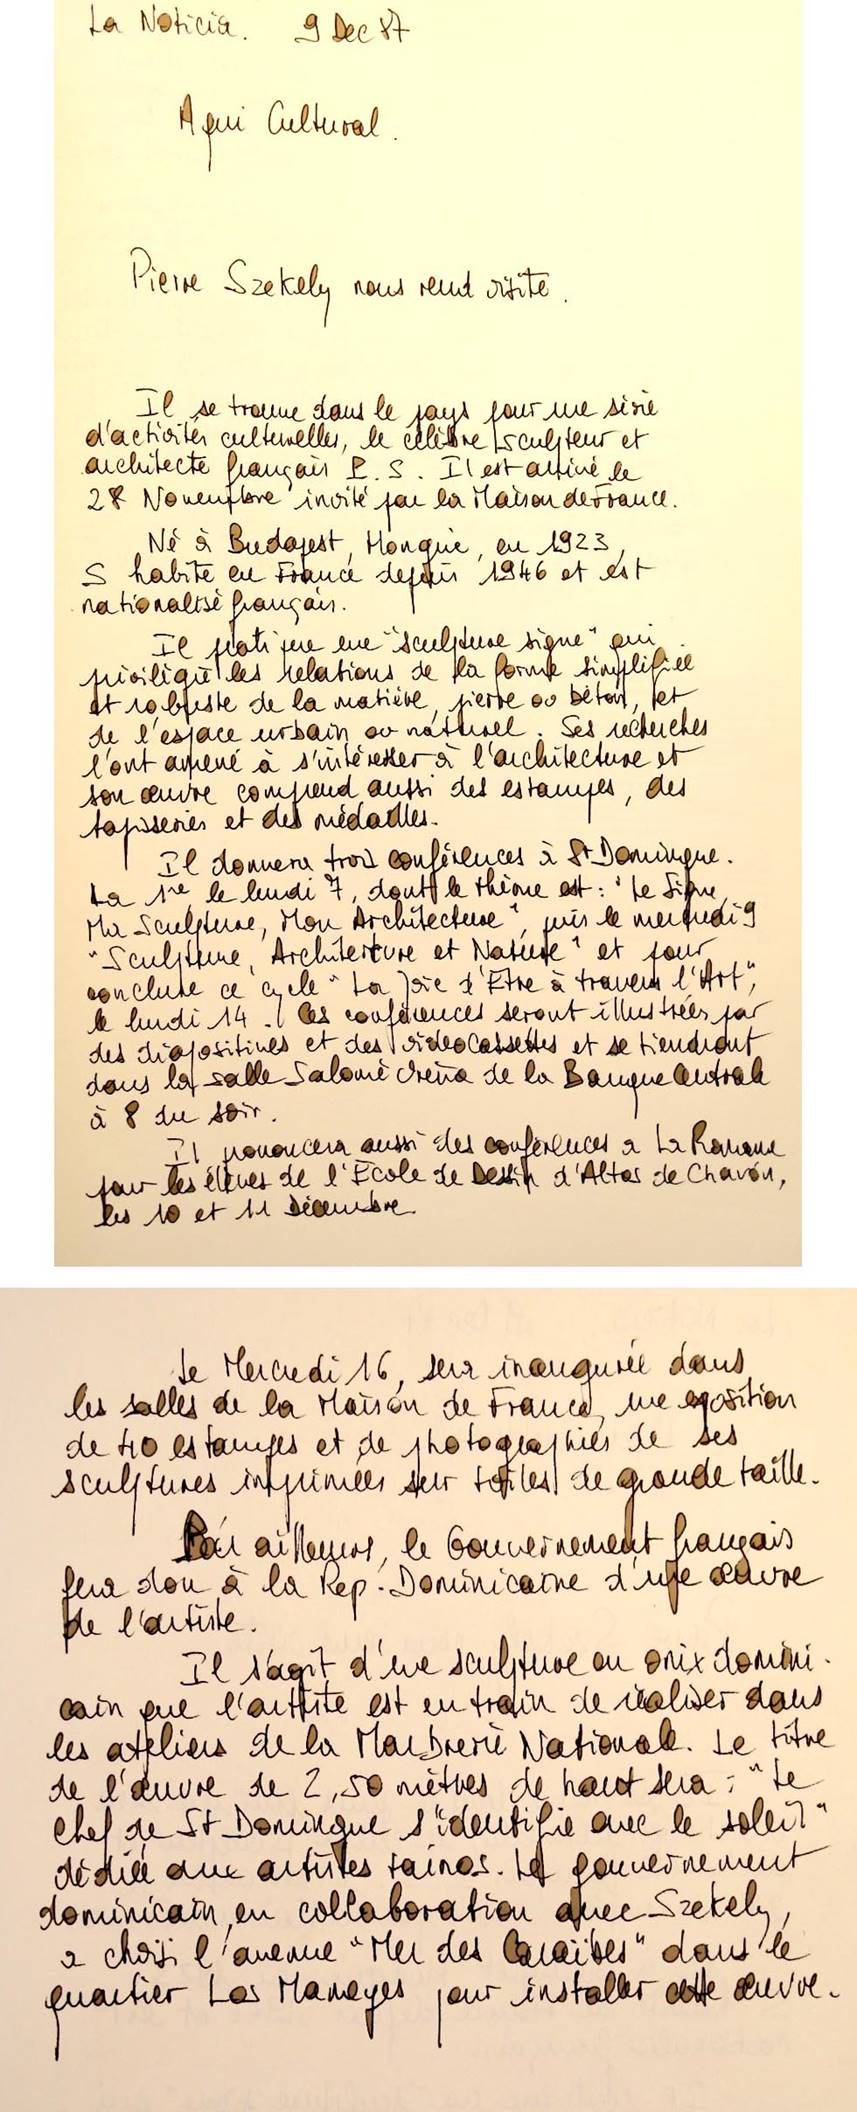 La Noticia. 9 Dec 87
Aqui Cultural.
Pierre Szekely nous rend visite.
Il se trouve dans le pays pour une série
d'activités culturelles, le célèbre sculpteur et
architecte français P. S. Il est arrivé le
28 Novembre invité par la Maison de France.
Né à Budapest, Hongrie, en 1923,
S habite en France depuis 1946 et est
nationalisé français.
Il pratique une "sculpture signe" qui
privilégie les relations de la forme simplifiée
et robuste de la matière, pierre ou béton, et
de l'espace urbain ou naturel. Ses recherches
l'ont amené à s'intéresser à l'architecture et
son œuvre comprend aussi des estampes, des
tapisseries et des médailles.
Il donnera trois conférences à St Domingue.
La 1re, le lundi 7, dont le thème est: "Le Signe,
Ma Sculpture, Mon Architecture", puis le mercredi 9
"Sculpture, Architecture et Nature" et pour
conclure ce cycle "La Joie d'Etre à travers l'Art",
le lundi 14. Ces conférences seront illustrées par
des diapositives et des videocassettes et se tiendront
dans la salle Salomé Ureña de la Banque Centrale
à 8 du soir.
Il prononcera aussi des conférences a La Romana
pour les élèves de l'Ecole de Dessin d'Altos de Chavón,
les 10 et 11 Décembre.
Le Mercredi 16, sera inaugurée dans
les salles de la Maison de France, une exposition
de 40 estampes et de photographies de ses
sculptures imprimées sur toiles de grande taille.
Par ailleurs, le Gouvernement français
fera don à la Rep. Dominicaine d'une œuvre
de l'artiste.
Il s'agit d'une sculpture en onix domini-
cain que l'artiste est en train de réaliser dans
les ateliers de la Marbrerie Nationale. Le titre
de l'œuvre de 2,50 mètres de haut sera: "Le
Chef de St Domingue s'identifie avec le soleil"
dédiée aux artistes tainos. Le gouvernement
dominicain, en collaboration avec Szekely,
a choisi l'avenue "Mer des Caraïbes" dans le
quartier Los Manoyes pour installer cette œuvre.